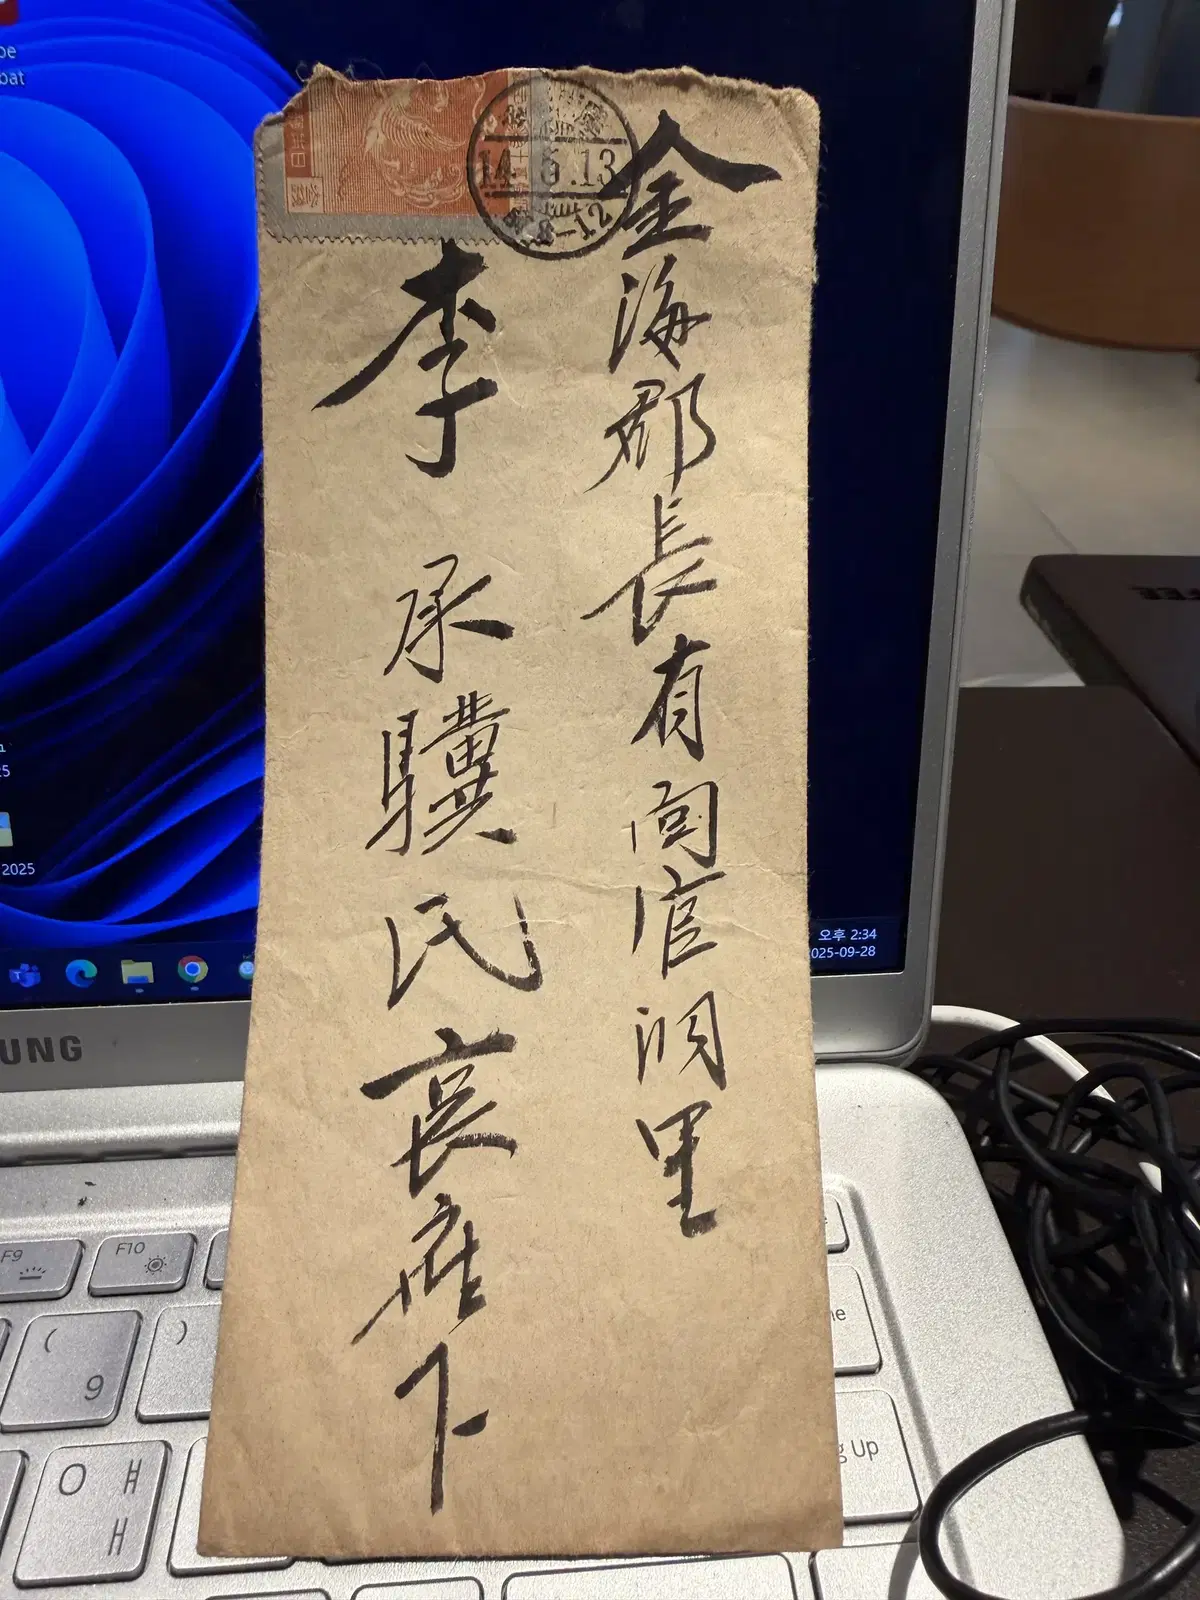 金海郡長有面官洞里
李 承驥氏哀座下
14.5.13
8-12
オ후 2:34
025-09-28
2025
UNG
F9
F10
(
9
)
ㅇ ㅐ
ㅒ
g Up